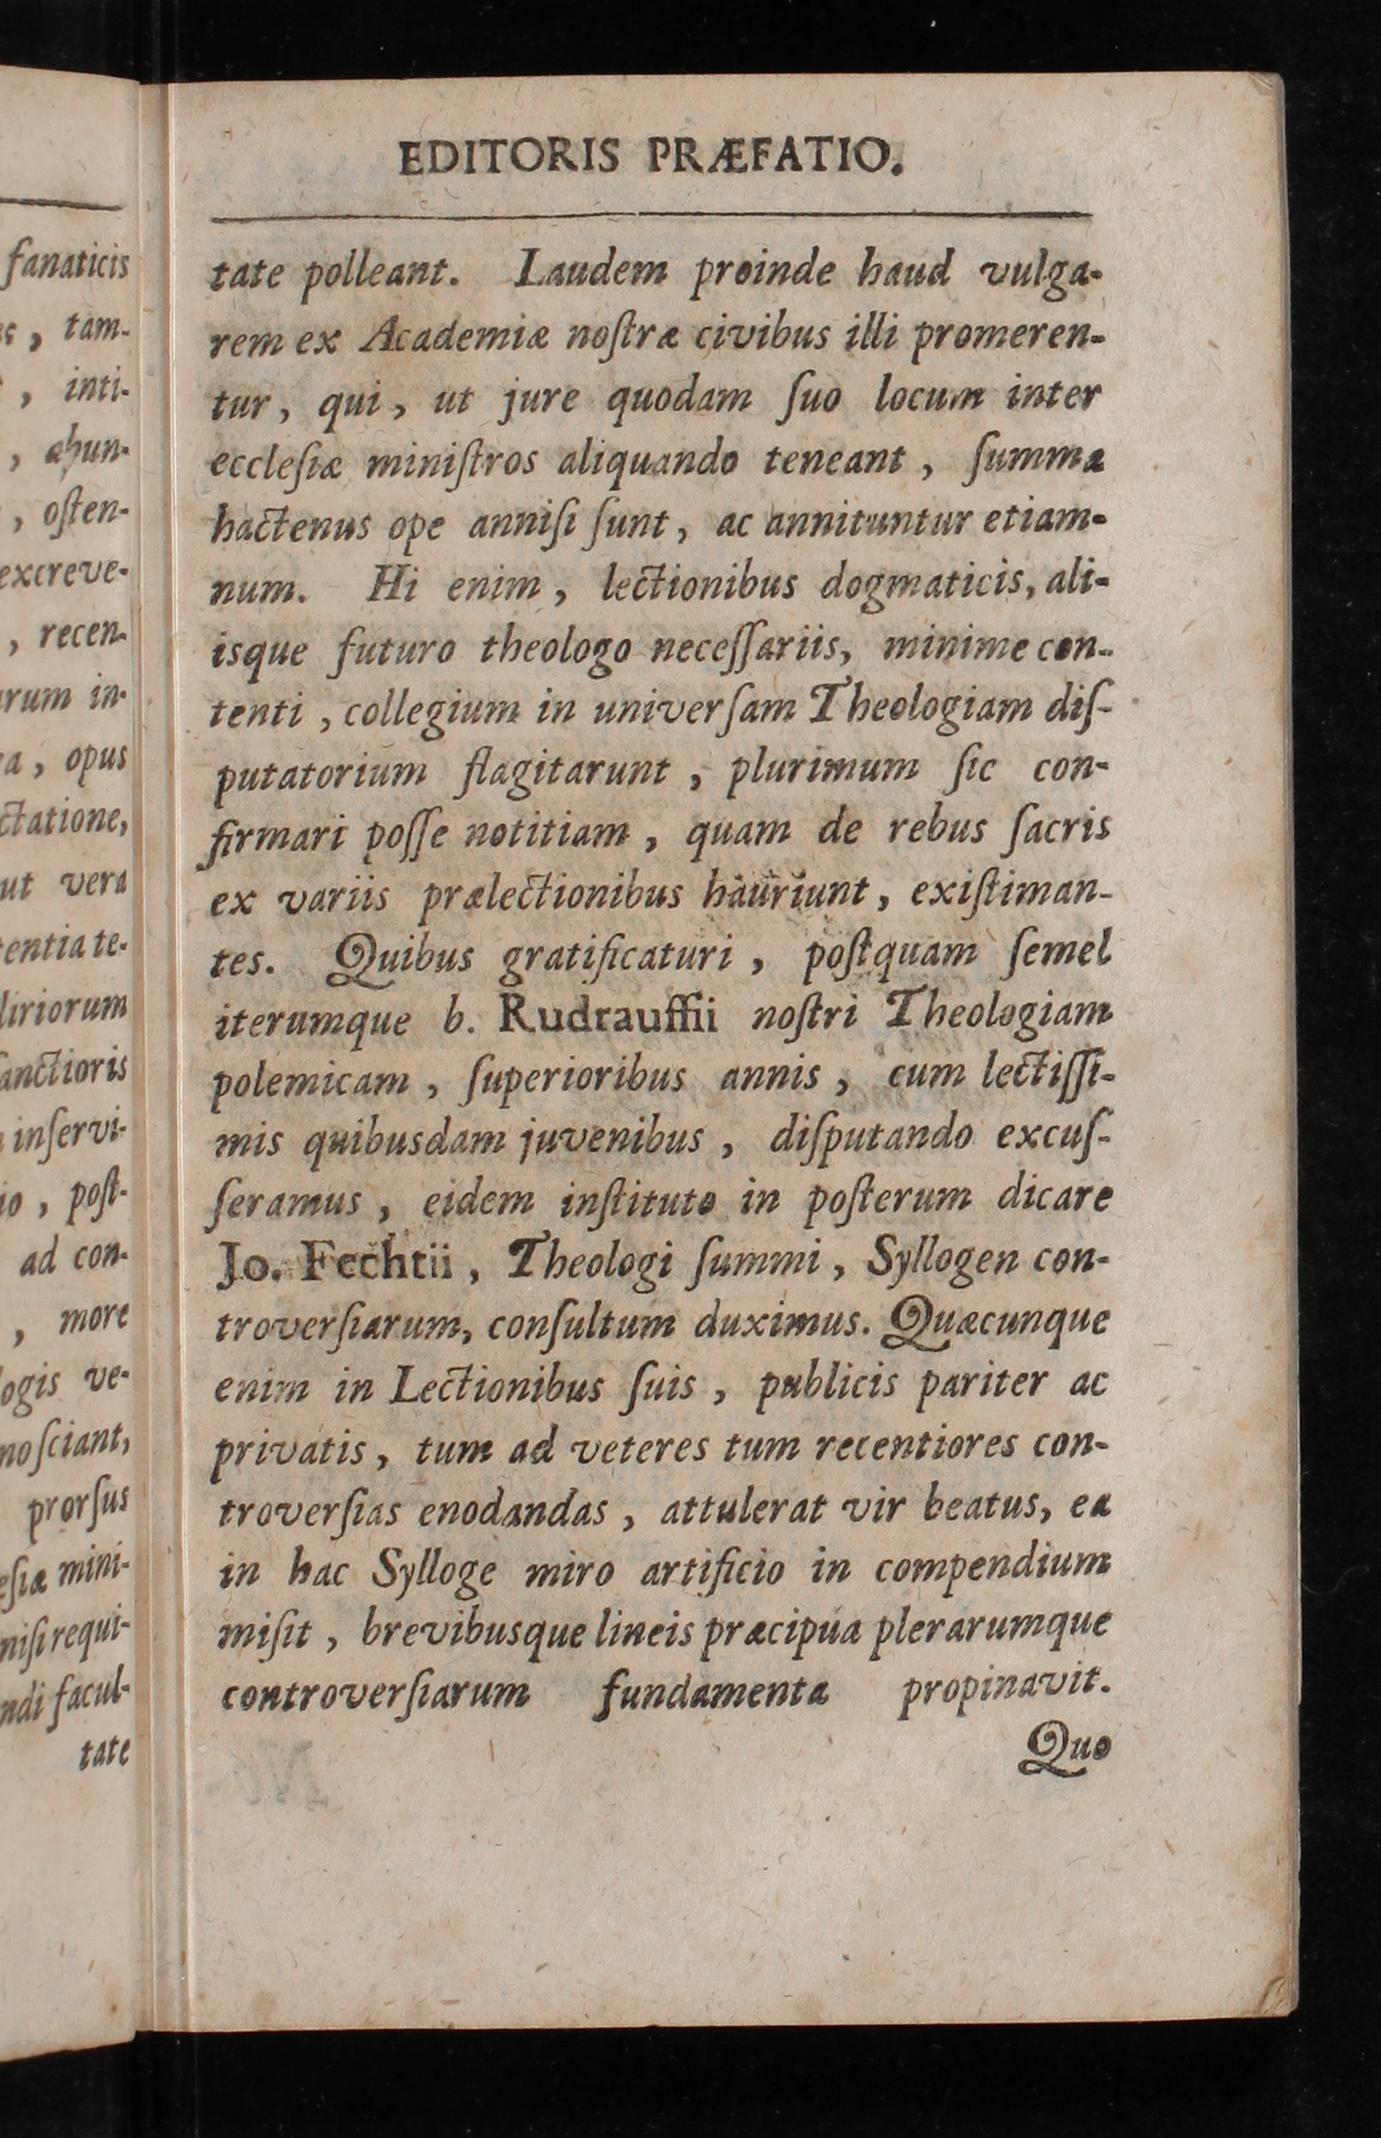 EDITORIS PRÆFATIO.
tate polleant. Laudem proinde haud vulga-
rem ex Academiæ noſtræ civibus illi promeren-
tur, qui, ut jure quodam ſuo locum inter
eccleſiæ miniſtros aliquando teneant, ſumma
hactenus ope anniſi ſunt, ac annituntur etiam-
num. Hi enim, lectionibus dogmaticis, ali-
isque futuro theologo neceſſariis, minime con-
tenti, collegium in univerſam Theologiam diſ-
putatorium flagitarunt, plurimum ſic con-
firmari poſſe notitiam, quam de rebus ſacris
ex variis prælectionibus hauriunt, exiſtiman-
tes. Quibus gratificaturi, poſtquam ſemel
iterumque b. Rudrauffii noſtri Theologiam
polemicam, ſuperioribus annis, cum lectiſſi-
mis quibusdam juvenibus, diſputando excuſ-
ſeramus, eidem inſtituto in poſterum dicare
Jo. Fechtii, Theologi ſummi, Syllogen con-
troverſiarum, conſultum duximus. Quæcunque
enim in Lectionibus ſuis, publicis pariter ac
privatis, tum ad veteres tum recentiores con-
troverſias enodandas, attulerat vir beatus, ea
in hac Sylloge miro artificio in compendium
miſit, brevibusque lineis præcipua plerarumque
controverſiarum fundamenta propinavit.
Quo
fanaticis
, tam-
, inti-
, abun-
, oſten-
excreve-
, recen-
rum in-
, opus
ctatione,
ut vera
tentia te-
liriorum
ſanctioris
inſervi-
io, poſt-
ad con-
, more
logis ve-
noſciant,
prorſus
eſiæ mini-
niſi requi-
ndi facul-
tate